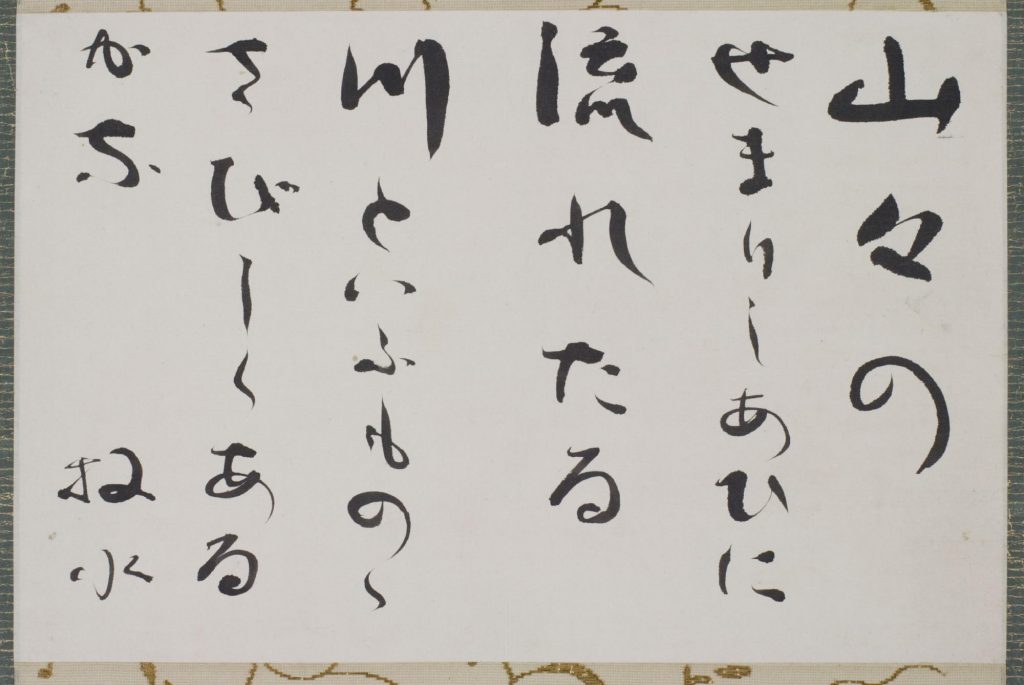 山々の
せまりしあひに
流れたる
川といふものゝ
さびしくある
かな 牧水